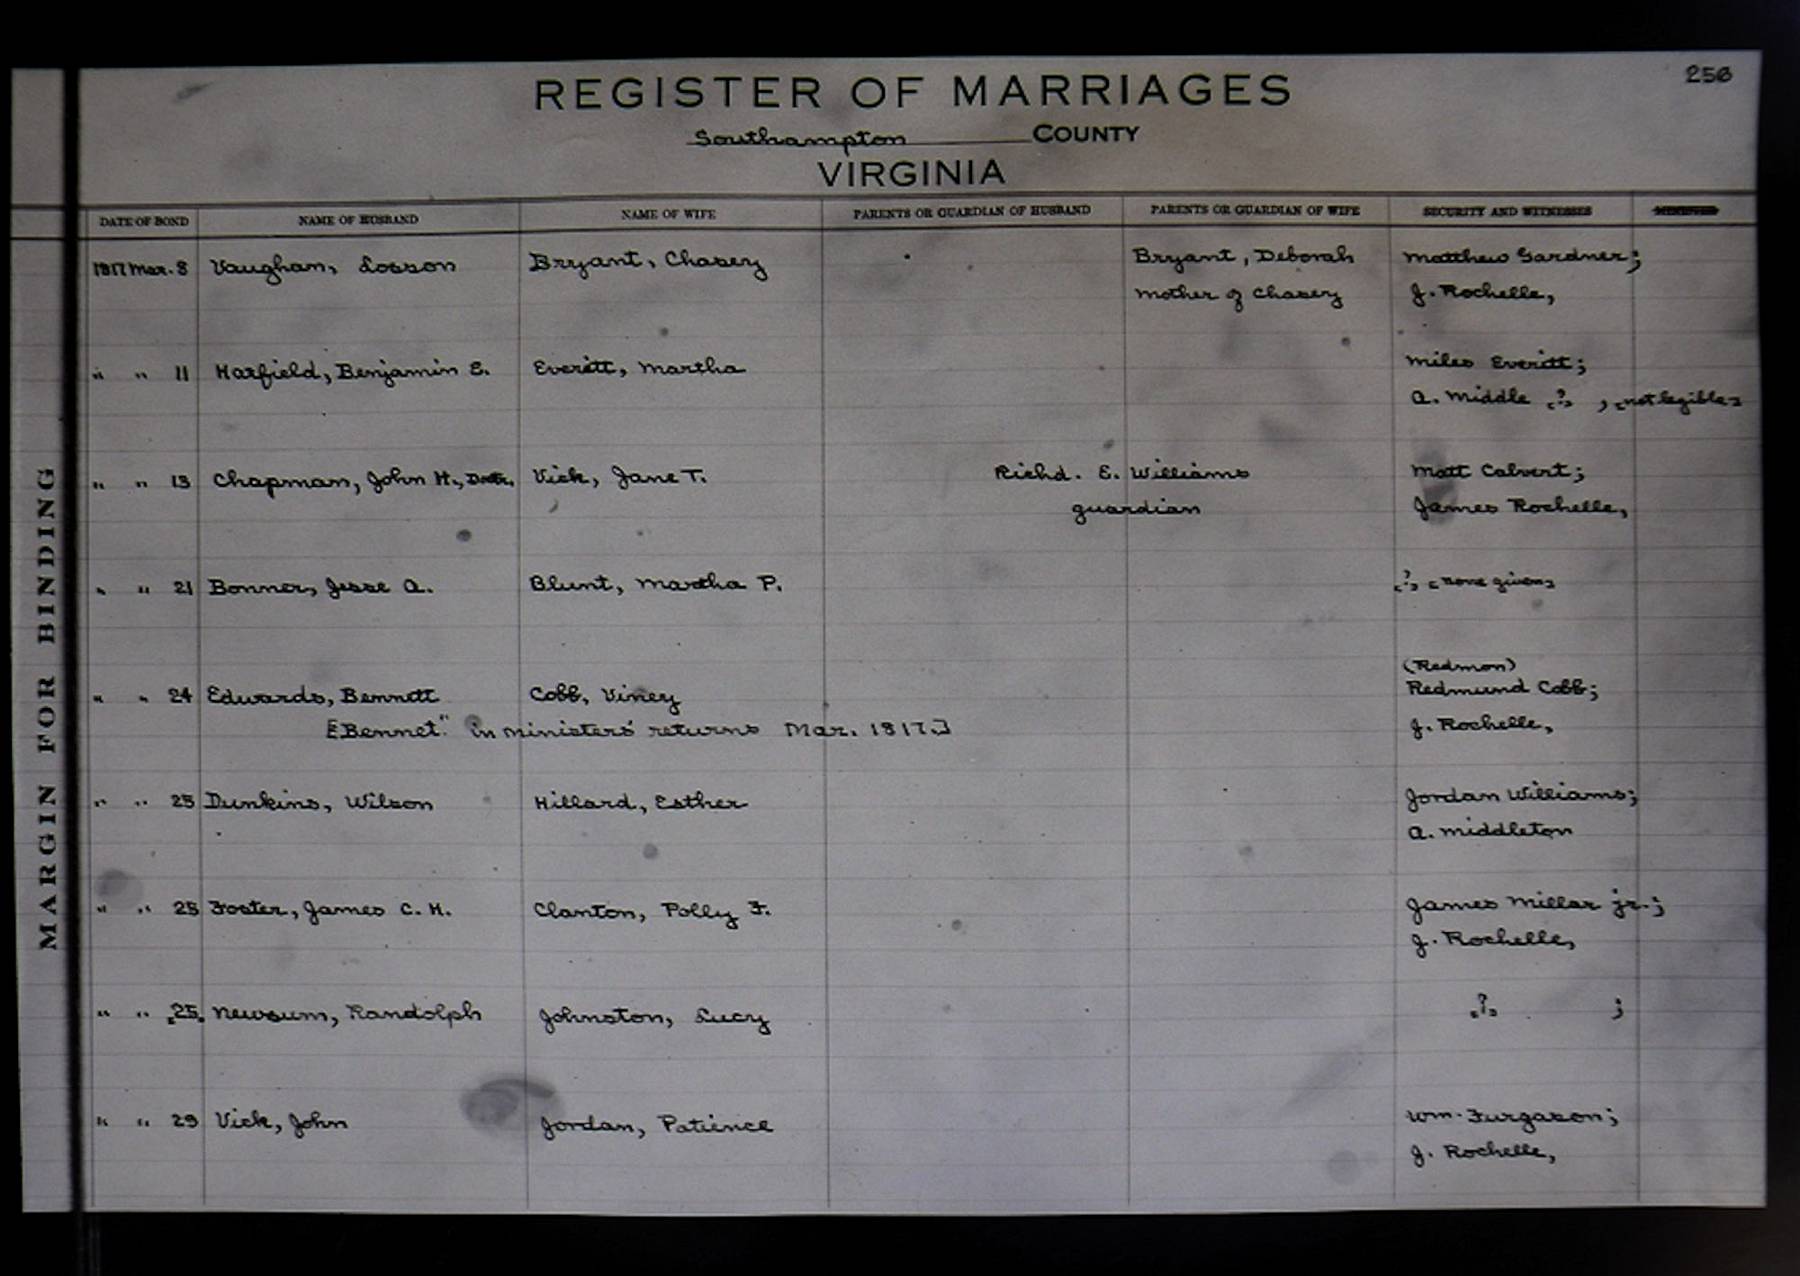 256
REGISTER OF MARRIAGES
Southampton COUNTY
VIRGINIA
DATE OF BOND NAME OF HUSBAND NAME OF WIFE PARENTS OR GUARDIAN OF HUSBAND PARENTS OR GUARDIAN OF WIFE SECURITY AND WITNESSES MINISTER
1817 Mar. 8 Vaughan, Losson Bryant, Chasey Bryant, Deborah Matthew Gardner;
mother of Chasey J. Rochelle,
" " 11 Harfield, Benjamin E. Everitt, Martha Miles Everitt;
A. Middle [?] , [not legible]
" " 13 Chapman, John H., Doctr. Vick, Jane T. Richd. E. Williams Matt Calvert;
guardian James Rochelle,
" " 21 Bonner, Jesse A. Blunt, Martha P. [?] [none given]
(Redmon)
" " 24 Edwards, Bennett Cobb, Viney Redmund Cobb;
["Bennet" in ministers' returns Mar. 1817.] J. Rochelle,
" " 25 Dunkins, Wilson Hillard, Esther Jordan Williams;
A. Middleton
" " 25 Foster, James C. H. Clanton, Polly F. James Millar jr.;
J. Rochelle,
" " [25] Newsum, Randolph Johnston, Lucy [?] ;
" " 29 Vick, John Jordan, Patience Wm. Furgason;
J. Rochelle,
MARGIN FOR BINDING